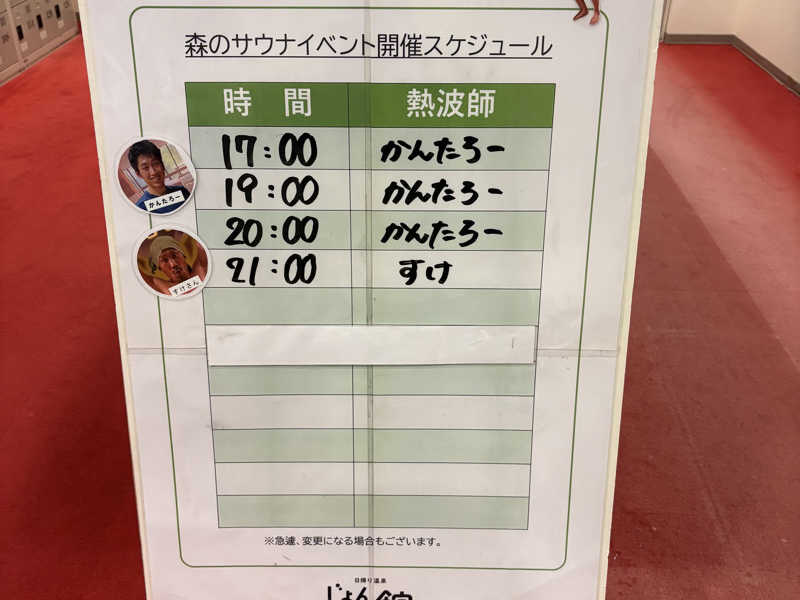 森のサウナイベント開催スケジュール
時 間 熱波師
17:00 かんたろー
19:00 かんたろー
20:00 かんたろー
21:00 すけ
かんたろー
すけさん
※急遽、変更になる場合もございます。
日帰り温泉